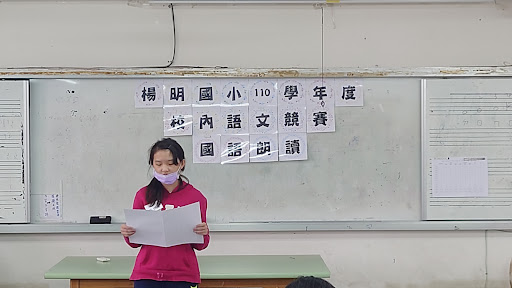 楊明國小110學年度
校內語文競賽
國語朗讀